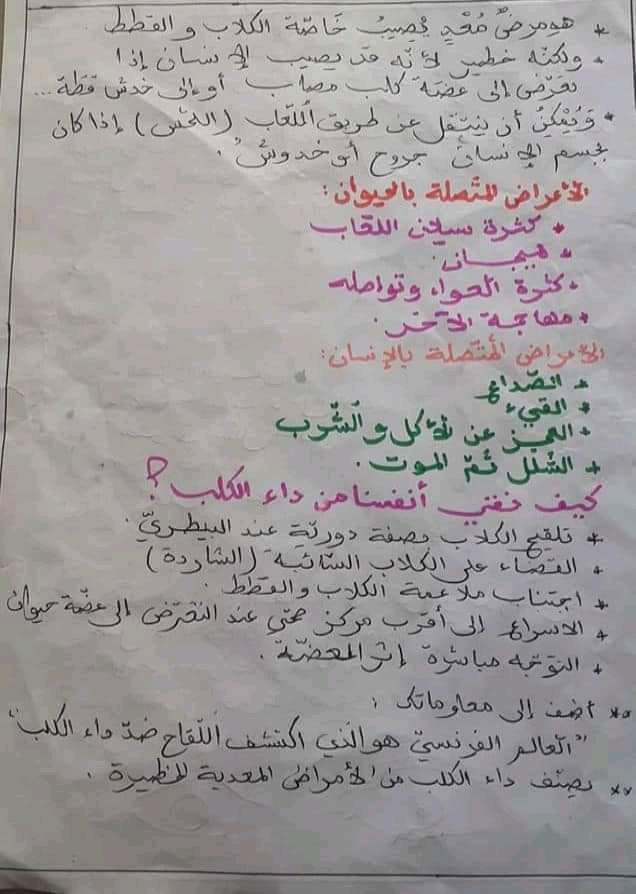 * هو مرضٌ مُعْدٍ يُصِيبُ خَاصّة الكلاب و القطط
* ولكنّه خطير لأنّه قد يصيب الإنسان إذا
تعرّض إلى عضّة كلب مصاب أو إلى خدش قطّة ...
* وَيُمْكِنُ أن ينتقل عن طريق اللّعاب (اللّحس) إذا كان
بجسم الإنسان جروح أو خدوش.
الأعراض المتّصلة بالحيوان:
* كثرة سيلان اللعاب
* هيجان.
* كثرة العواء وتواصله
* مهاجمة الآخر.
الأعراض المُتّصلة بالإنسان:
* الصّداع
* القيء
* العجز عن الأكل و الشّرب
* الشّلل ثمّ الموت.
كيف نقي أنفسنا من داء الكلب؟
* تلقيح الكلاب بصفة دوريّة عند البيطريّ.
* القضاء على الكلاب السّائبة (الشّاردة)
* اجتناب ملاعبة الكلاب والقطط.
* الاسراع إلى أقرب مركز صحّي عند التعرّض إلى عضّة حيوان
* التوجّه مباشرة إثر العضّة.
** أضف إلى معلوماتك:
"العالم الفرنسيّ هو الّذي اكتشف اللّقاح ضدّ داء الكلب"
** يصنّف داء الكلب من الأمراض المعدية الخطيرة.